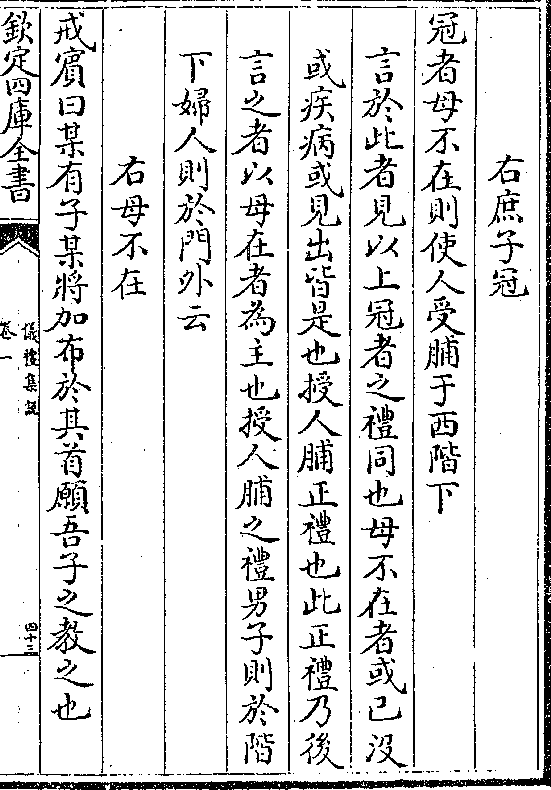 右庶子冠
冠者母不在則使人受脯于西階下
言於此者見以上冠者之禮同也母不在者或已沒
或疾病或見出皆是也授人脯正禮也此正禮乃後
言之者以母在者為主也授人脯之禮男子則於階
下婦人則於門外云
右母不在
戒賓曰某有子某將加布於其首願吾子之教之也
欽定四庫全書
儀禮集說
卷一
四十三